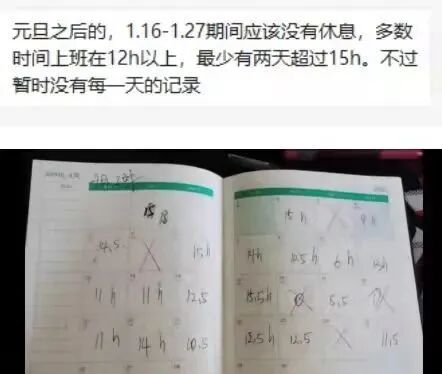 元旦之后的，1.16-1.27期间应该没有休息，多数
时间上班在12h以上，最少有两天超过15h。不过
暂时没有每一天的记录
15h 9h
14.5 15h 14h 12.5h 6h 13h
11h 11h 12.5 15.5h 5.5
11h 14h 10.5 12.5h 12.5 11.5